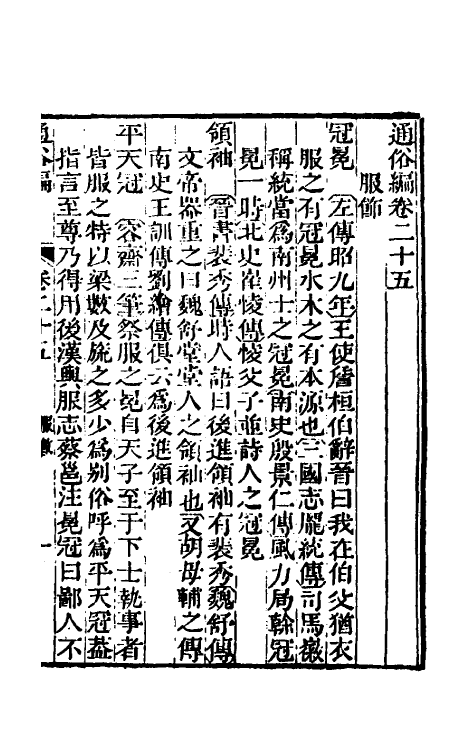 通俗編卷二十五
服飾
冠冕　左傳昭九年王使詹桓伯辭晉曰我在伯父猶衣
服之有冠冕水木之有本源也三國志龐統傳司馬徽
稱統當爲南州士之冠冕南史殷景仁傳風力局榦冠
冕一時北史崔㥄傳㥄父子並詩人之冠冕
領袖　晉書裴秀傳時人語曰後進領袖有裴秀魏舒傳
文帝器重之曰魏舒堂堂人之領袖也又胡母輔之傳
南史王訓傳劉繪傳俱云爲後進領袖
平天冠　容齋三筆祭服之冕自天子至于下士執事者
皆服之特以梁數及旒之多少爲别俗呼爲平天冠蓋
指言至尊乃得用後漢輿服志蔡邕注冕冠曰鄙人不
通俗編　卷二十五　服飾　一